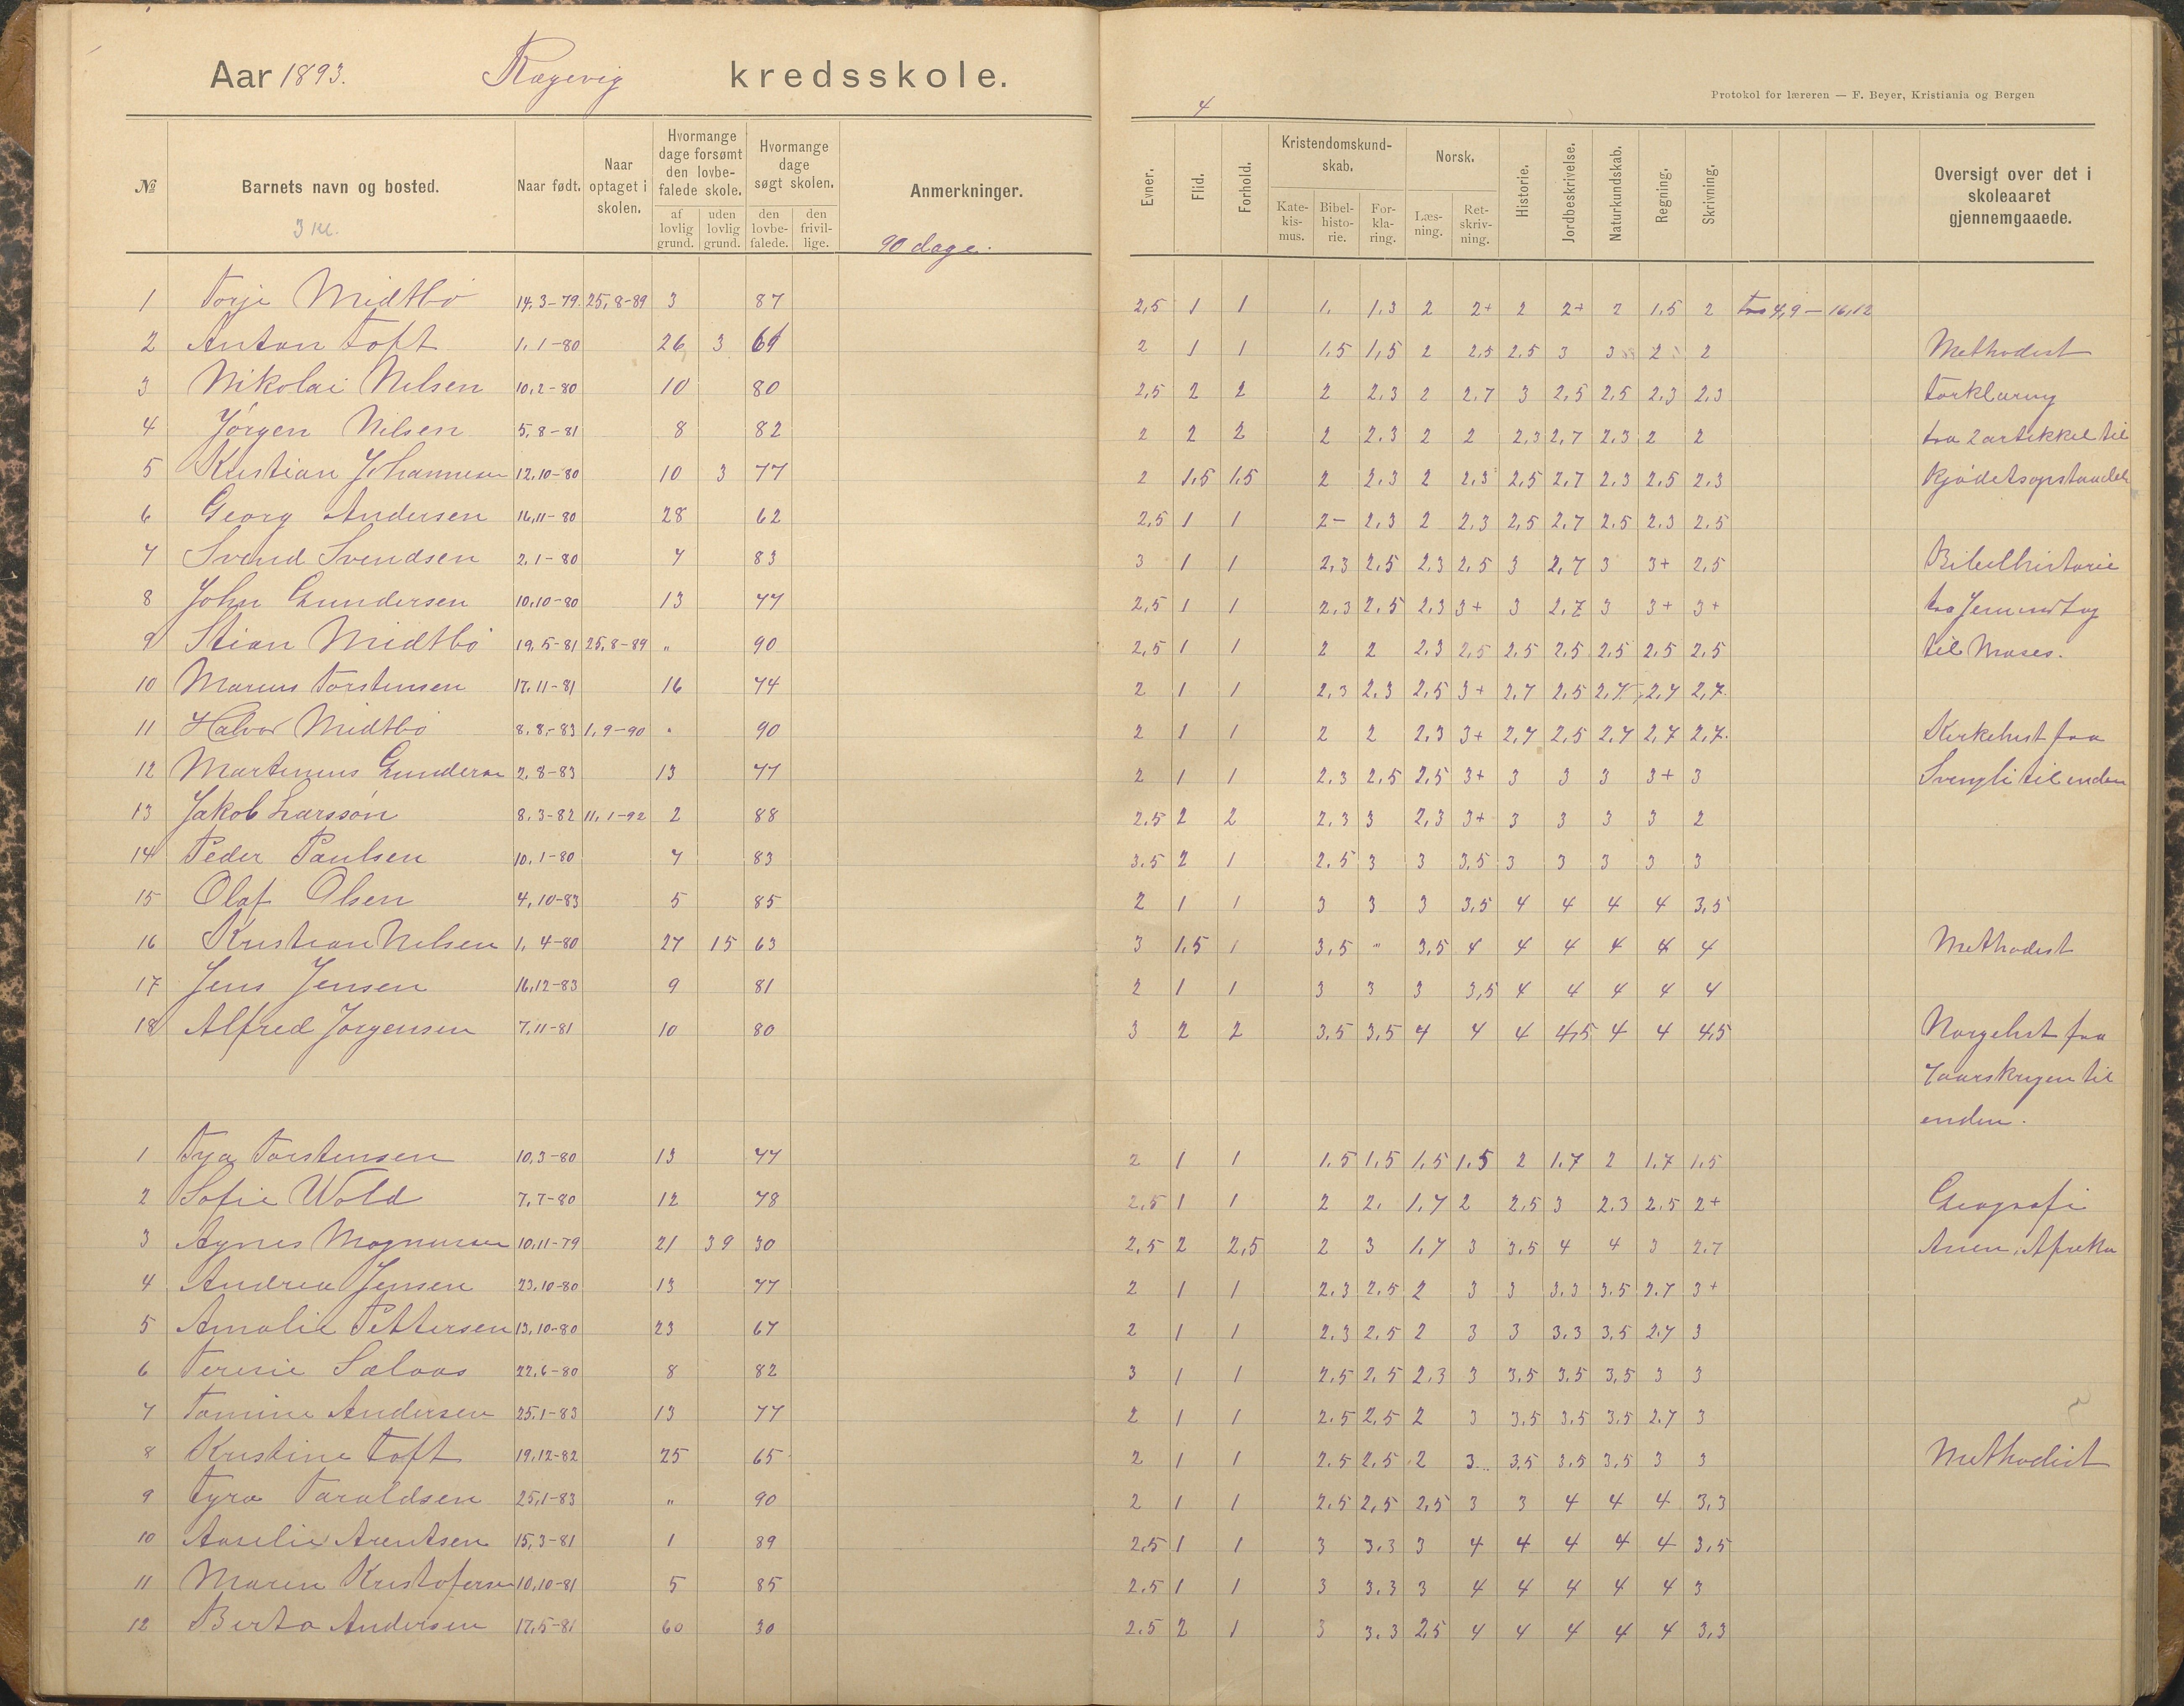 Aar 1893. Rægevig kredsskole.
4
Protokol for læreren — F. Beyer, Kristiania og Bergen
№ Barnets navn og bosted. Naar født. Naar optaget i skolen. Hvormange dage forsømt den lovbefalede skole. af lovlig grund. uden lovlig grund. Hvormange dage søgt skolen. den lovbefalede. den frivillige. Anmerkninger. Evner. Flid. Forhold. Kristendomskundskab. Katekismus. Bibelhistorie. Forklaring. Norsk. Læsning. Retskrivning. Historie. Jordbeskrivelse. Naturkundskab. Regning. Skrivning. Oversigt over det i skoleaaret gjennemgaaede.
3 kl. 90 dage.
1 Torje Midtbö 14,3-79. 25,8-89 3 87 2,5 1 1 1. 1.3 2 2+ 2 2+ 2 1.5 2 fra 4,9 — 16,12
2 Anton Toft 1.1-80 26 3 61 2 1 1 1.5 1,5 2 2.5 2.5 3 3 2 2 Methodist
3 Nikolai Nilsen 10,2-80 10 80 2,5 2 2 2 2.3 2 2.7 3 2,5 2,5 2.3 2,3 Forklaring
4 Jörgen Nilsen 5,8-81 8 82 2 2 2 2 2.3 2 2 2,3 2,7 2.3 2 2 fra 2 artikkel til
5 Kristian Johannesen 12,10-80 10 3 77 2 1.5 1.5 2 2.3 2 2.3 2,5 2,7 2.3 2.5 2.3 kjödets opstandelse
6 Georg Andersen 16,11-80 28 62 2,5 1 1 2- 2,3 2 2.3 2,5 2,7 2.5 2.3 2.5
7 Svend Svendsen 2.1-80 7 83 3 1 1 2,3 2.5 2.3 2,5 3 2,7 3 3+ 2,5 Bibelhistorie
8 John Gundersen 10,10-80 13 77 2,5 1 1 2,3 2,5 2,3 3+ 3 2,7 3 3+ 3+ fra
9 Stian Midtbö 19,5-81 25,8-89 „ 90 2,5 1 1 2 2 2.3 2,5 2.5 2.5 2.5 2,5 2,5 til Moses.
10 Marius Torstensen 17.11-81 16 74 2 1 1 2.3 2.3 2,5 3+ 2,7 2,5 2,7 2,7 2,7
11 Halvor Midtbö 8,8-83 1,9-90 „ 90 2 1 1 2 2 2,3 3+ 2,7 2,5 2,7 2,7 2,7 Kirkehist fra
12 Martinius Gundersen 2,8-83 13 77 2 1 1 2.3 2,5 2,5 3+ 3 3 3 3+ 3 Svingli til enden
13 Jakob Larssön 8.3-82 11,1-92 2 88 2.5 2 2 2.3 3 2,3 3+ 3 3 3 3 2
14 Peder Paulsen 10,1-80 7 83 3.5 2 1 2.5 3 3 3.5 3 3 3 3 3
15 Olaf Olsen 4,10-83 5 85 2 1 1 3 3 3 3,5 4 4 4 4 3,5
16 Kristian Nilsen 1,4-80 27 15 63 3 1.5 1 3,5 „ 3,5 4 4 4 4 4 4 Methodist
17 Jens Jensen 16,12-83 9 81 2 1 1 3 3 3 3,5 4 4 4 4 4
18 Alfred Jörgensen 7,11-81 10 80 3 2 2 3.5 3,5 4 4 4 4,5 4 4 4,5 Norgeshist fra
7aarskrigen til
enden.
1 Torstensen 10,3-80 13 77 2 1 1 1.5 1,5 1,5 1.5 2 1.7 2 1.7 1.5
2 Sofie Wold 7,7-80 12 78 2,5 1 1 2 2. 1.7 2 2.5 3 2.3 2.5 2+ Geografi
3 Agnes Magnussen 10,11-79 21 39 30 2,5 2 2,5 2 3 1,7 3 3.5 4 4 3 2.7 Asien, Afreka
4 Andrea Jensen 23.10-80 13 77 2 1 1 2.3 2.5 2 3 3 3.3 3.5 2.7 3+
5 Amalie Pettersen 13,10-80 23 67 2 1 1 2.3 2,5 2 3 3 3.3 3,5 2.7 3
6 Teresie Salaas 22,6-80 8 82 3 1 1 2,5 2,5 2.3 3 3,5 3.5 3,5 3 3
7 Tomine Andersen 25.1-83 13 77 2 1 1 2.5 2,5 2 3 3.5 3.5 3.5 2.7 3
8 Kristine Toft 19,12-82 25 65 2 1 1 2.5 2.5 2 3 3.5 3.5 3.5 3 3 Methodist
9 Tyra Taraldsen 25,1-83 „ 90 2 1 1 2.5 2,5 2,5 3 3 4 4 4 3,3
10 Aaselie Arentsen 15,3-81 1 89 2,5 1 1 3 3.3 3 4 4 4 4 4 3,5
11 Maren Kristofersen 10,10-81 5 85 2.5 1 1 3 3.3 3 4 4 4 4 4 3
12 Berta Andersen 17,5-81 60 30 2.5 2 1 3 3.3 2,5 4 4 4 4 4 3,3